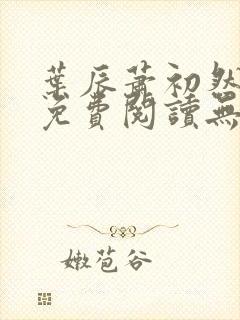 葉辰蕭初然
免費閱讀無
嫩苞谷